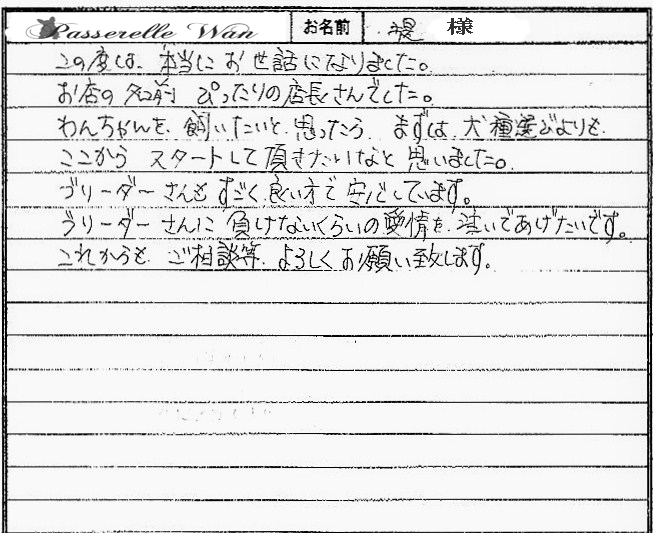 Passerelle Wan お名前 堤 様
この度は、本当にお世話になりました。
お店の名前 ぴったりの店長さんでした。
わんちゃんを、飼いたいと、思ったら、まずは、犬種選びよりも、
ここから スタートして頂きたいなと 思いました。
ブリーダーさんも すごく 良い方で 安心しています。
ブリーダーさんに 負けないくらいの愛情を、注いであげたいです。
これからも、ご相談等、よろしくお願い致します。